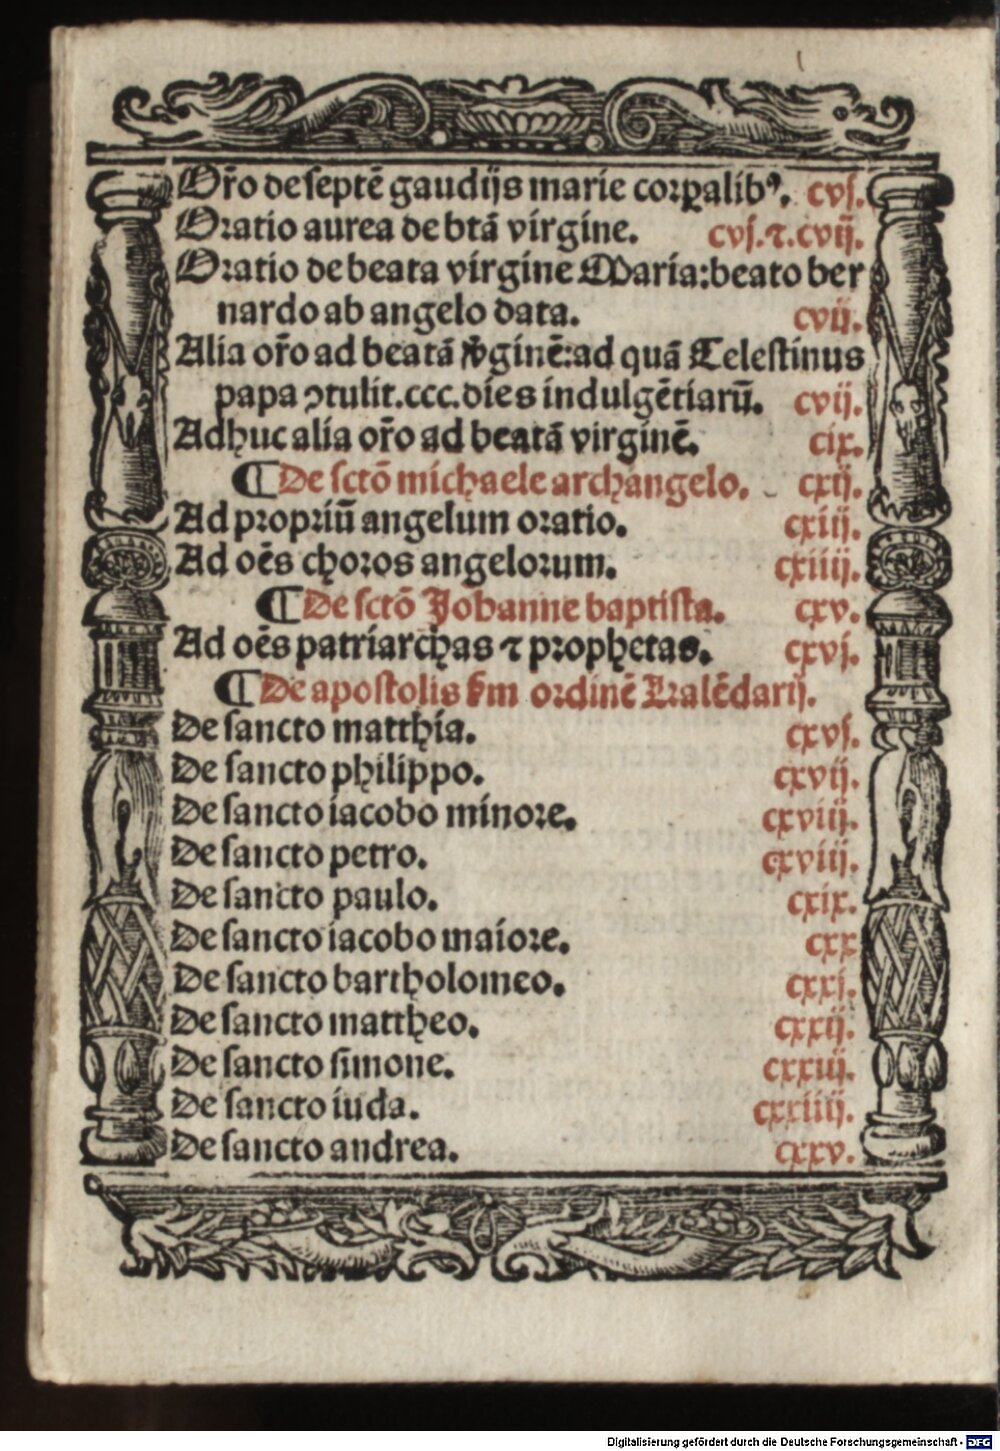 Or̃o de septẽ gaudijs marie corꝑalibꝰ. cvj.
Oratio aurea de btã virgine. cvj.⁊.cvij.
Oratio de beata virgine Maria:beato ber
nardo ab angelo data. cvij.
Alia or̃o ad beatã v̓ginẽ:ad quã Celestinus
papa ꝯtulit.ccc.dies indulgẽtiarũ. cvij.
Adhuc alia or̃o ad beatã virginẽ. cix.
¶De sctõ michaele archangelo. cxij.
Ad propriũ angelum oratio. cxiij.
Ad oẽs choros angelorum. cxiiij.
¶De sctõ Johanne baptista. cxv.
Ad oẽs patriarchas ⁊ prophetas. cxvj.
¶De apostolis ẜm ordinẽ Kalẽdarij.
De sancto matthia. cxvj.
De sancto philippo. cxvij.
De sancto iacobo minore. cxviij.
De sancto petro. cxviij.
De sancto paulo. cxix.
De sancto iacobo maiore. cxx
De sancto bartholomeo. cxxj.
De sancto mattheo. cxxij.
De sancto simone. cxxiij.
De sancto iuda. cxxiiij.
De sancto andrea. cxxv.
Digitalisierung gefördert durch die Deutsche Forschungsgemeinschaft - DFG